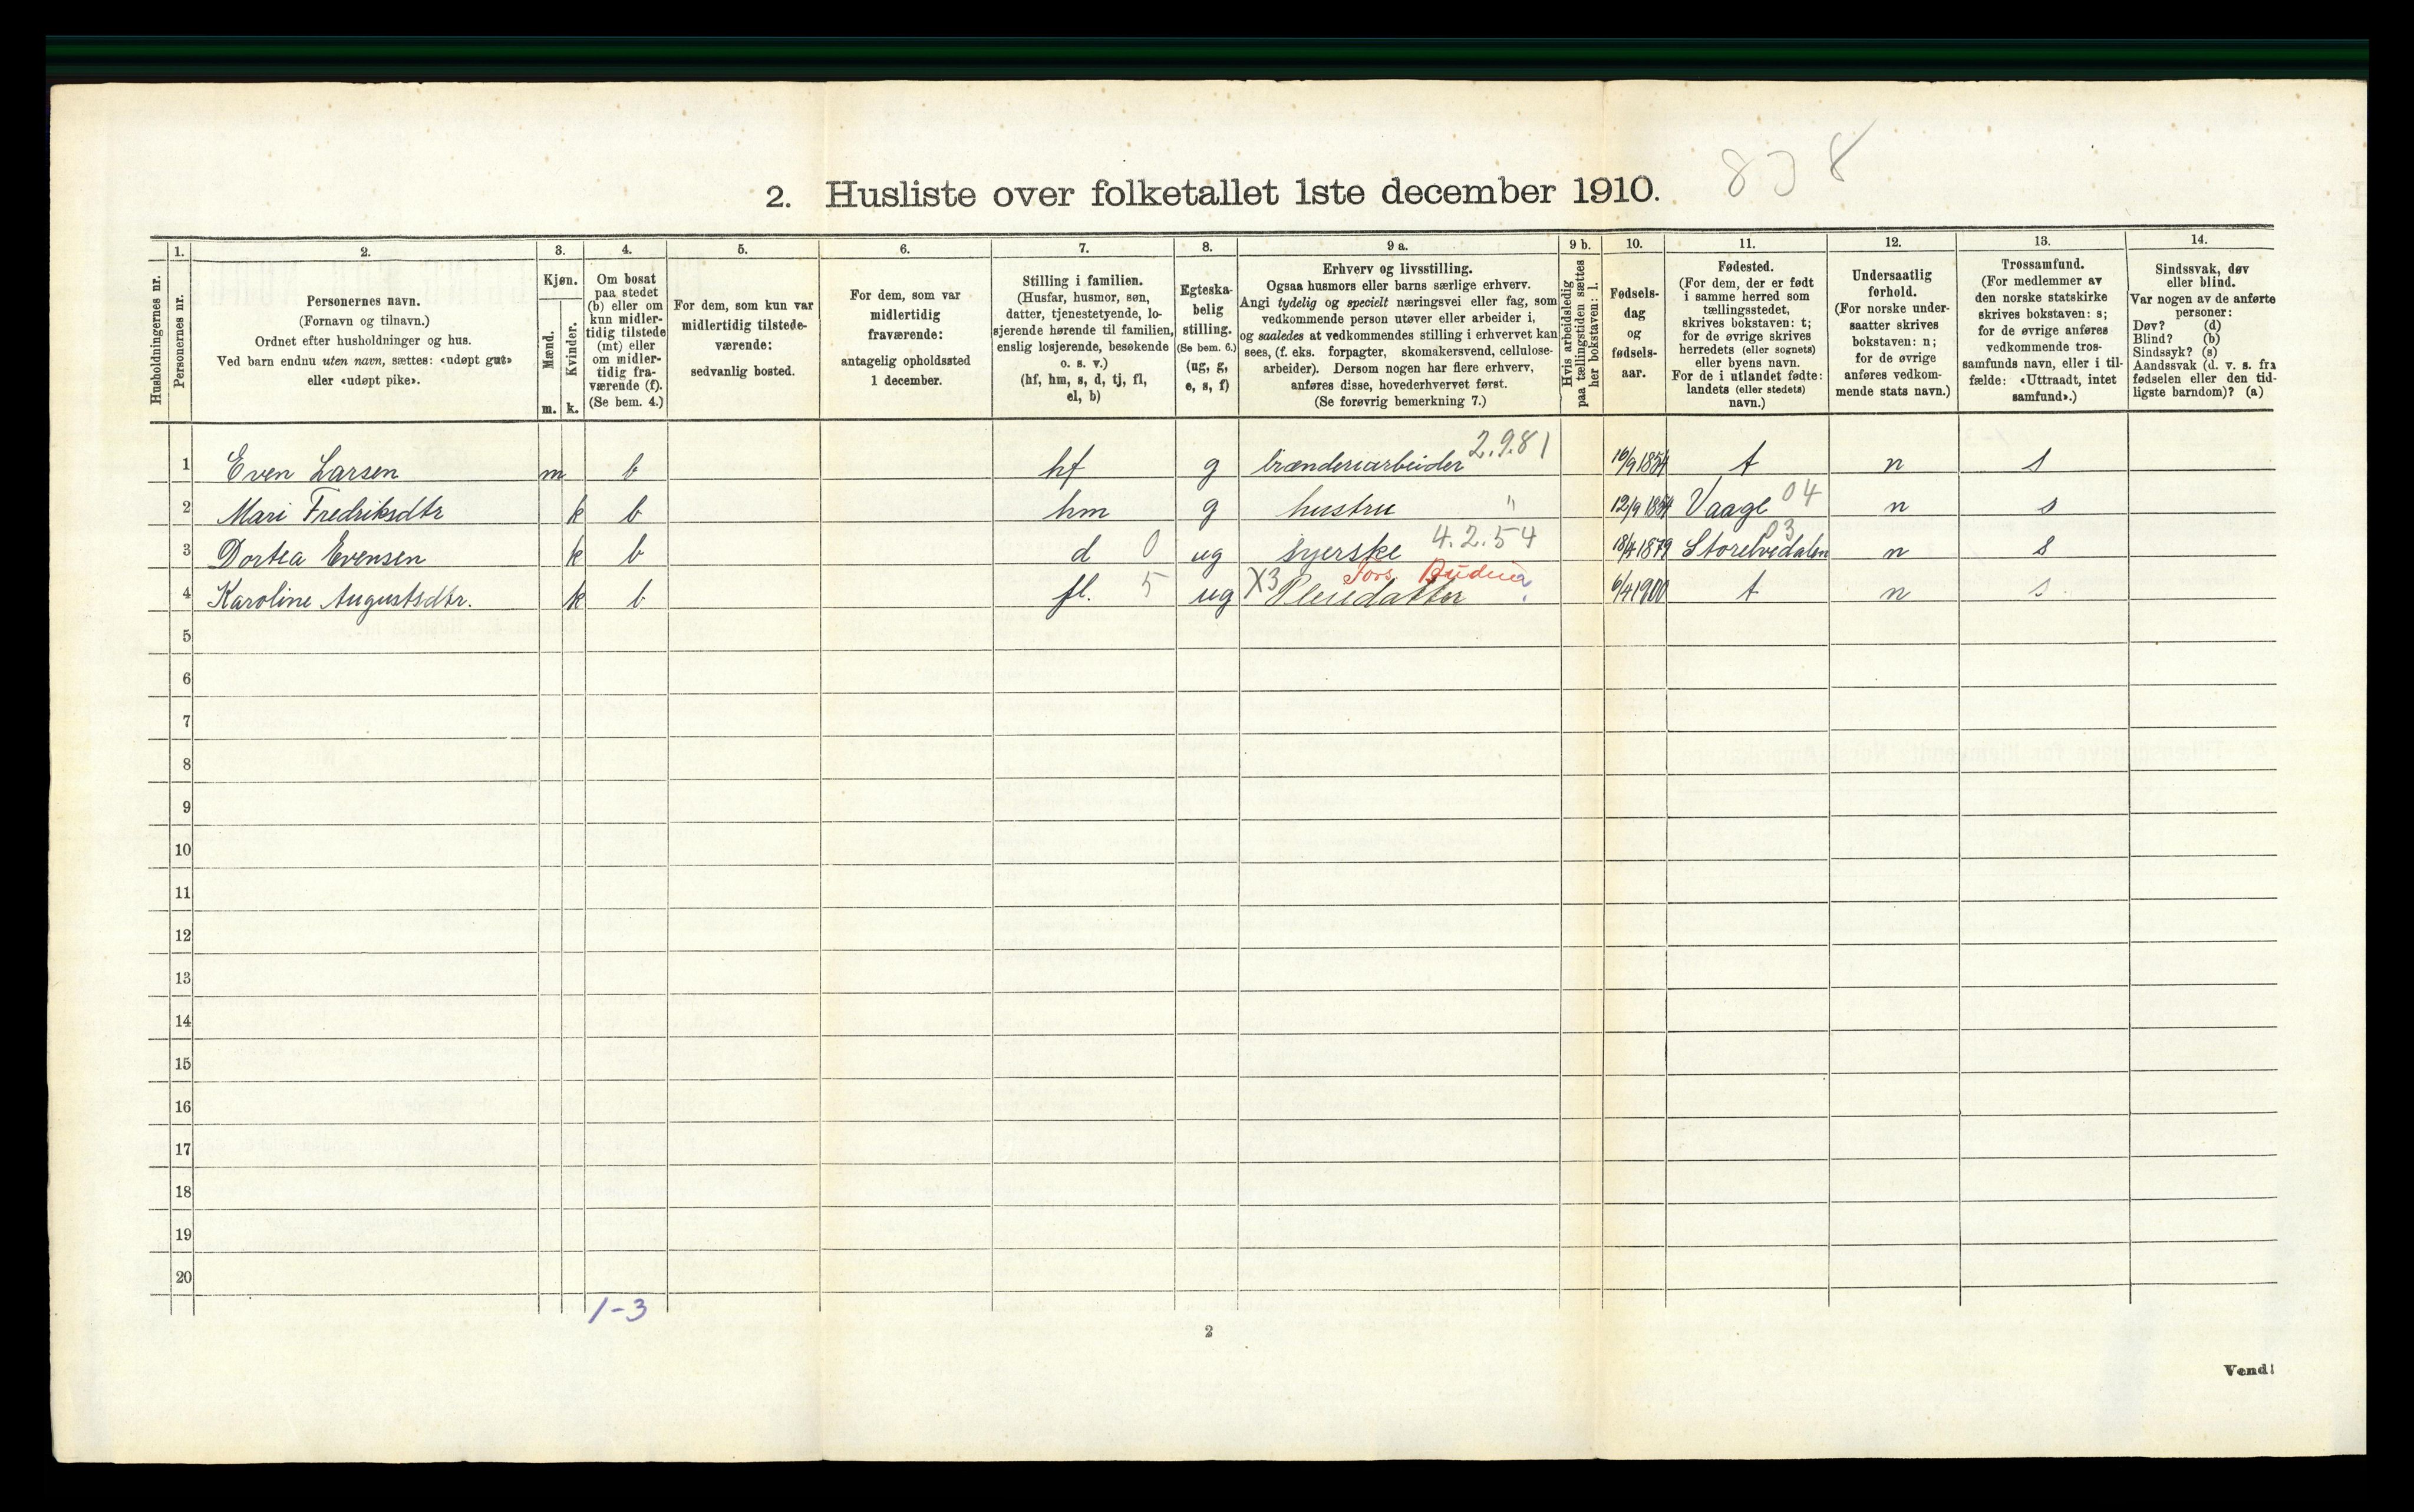 838
2. Husliste over folketallet 1ste december 1910.
1. 2. 3. 4. 5. 6. 7. 8. 9 a. 9 b. 10. 11. 12. 13. 14.
Husholdningernes nr.
Personernes nr.
Personernes navn.
(Fornavn og tilnavn.)
Ordnet efter husholdninger og hus.
Ved barn endnu uten navn, sættes: «udøpt gut»
eller «udøpt pike».
Kjøn.
Mænd.
Kvinder.
m. k.
Om bosat
paa stedet
(b) eller om
kun midler-
tidig tilstede
(mt) eller
om midler-
tidig fra-
værende (f).
(Se bem. 4.)
For dem, som kun var
midlertidig tilstede-
værende:
sedvanlig bosted.
For dem, som var
midlertidig
fraværende:
antagelig opholdssted
1 december.
Stilling i familien.
(Husfar, husmor, søn,
datter, tjenestetyende, lo-
sjerende hørende til familien,
enslig losjerende, besøkende
o. s. v.)
(hf, hm, s, d, tj, fl,
el, b)
Egteska-
belig
stilling.
(Se bem. 6.)
(ug, g,
e, s, f)
Erhverv og livsstilling.
Ogsaa husmors eller barns særlige erhverv.
Angi tydelig og specielt næringsvei eller fag, som
vedkommende person utøver eller arbeider i,
og saaledes at vedkommendes stilling i erhvervet kan
sees, (f. eks. forpagter, skomakersvend, cellulose-
arbeider). Dersom nogen har flere erhverv,
anføres disse, hovederhvervet først.
(Se forøvrig bemerkning 7.)
Hvis arbeidsledig
paa tællingstiden sættes
her bokstaven: l.
Fødsels-
dag
og
fødsels-
aar.
Fødested.
(For dem, der er født
i samme herred som
tællingsstedet,
skrives bokstaven: t;
for de øvrige skrives
herredets (eller sognets)
eller byens navn.
For de i utlandet fødte:
landets (eller stedets)
navn.)
Undersaatlig
forhold.
(For norske under-
saatter skrives
bokstaven: n;
for de øvrige
anføres vedkom-
mende stats navn.)
Trossamfund.
(For medlemmer av
den norske statskirke
skrives bokstaven: s;
for de øvrige anføres
vedkommende tros-
samfunds navn, eller i til-
fælde: «Uttraadt, intet
samfund».)
Sindssvak, døv
eller blind.
Var nogen av de anførte
personer:
Døv? (d)
Blind? (b)
Sindssyk? (s)
Aandssvak (d. v. s. fra
fødselen eller den tid-
ligste barndom)? (a)
1 Even Larsen m b hf g brænderiarbeider 2.9.81 10/9 1854 t n s
2 Mari Fredriksdtr k b hm g hustru " 12/9 1854 Vaage 04 n s
3 Dortea Evensen k b d 0 ug syerske 4.2.54 18/4 1879 Storelvedalen 03 n s
4 Karoline Augustsdtr. k b fl. 5 ug X3 Pleiedatter Fors. 6/4 1900 t n s
5
6
7
8
9
10
11
12
13
14
15
16
17
18
19
20
1-3
2
Vend!